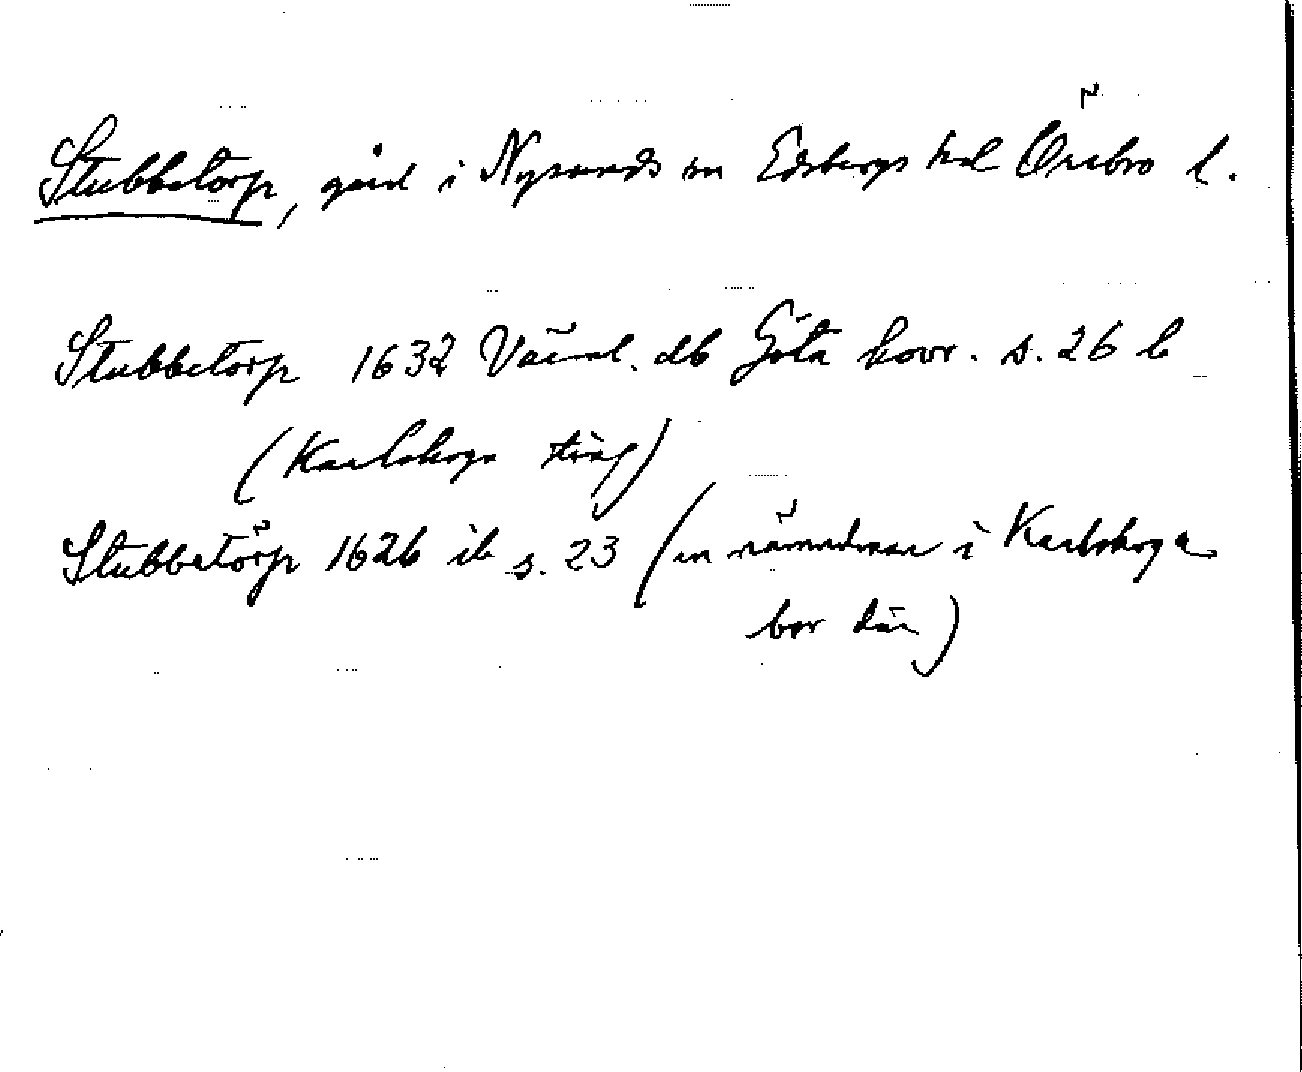 Stubbetorp, gård i Nysunds sn Edsbergs hd Örebro l.
Stubbetorp 1632 Värml. db Göta hovr. s. 26 b
(Karlskoga ting)
Stubbetörp 1626 ib s. 23 (en nämndman i Karlskoga
bor där)